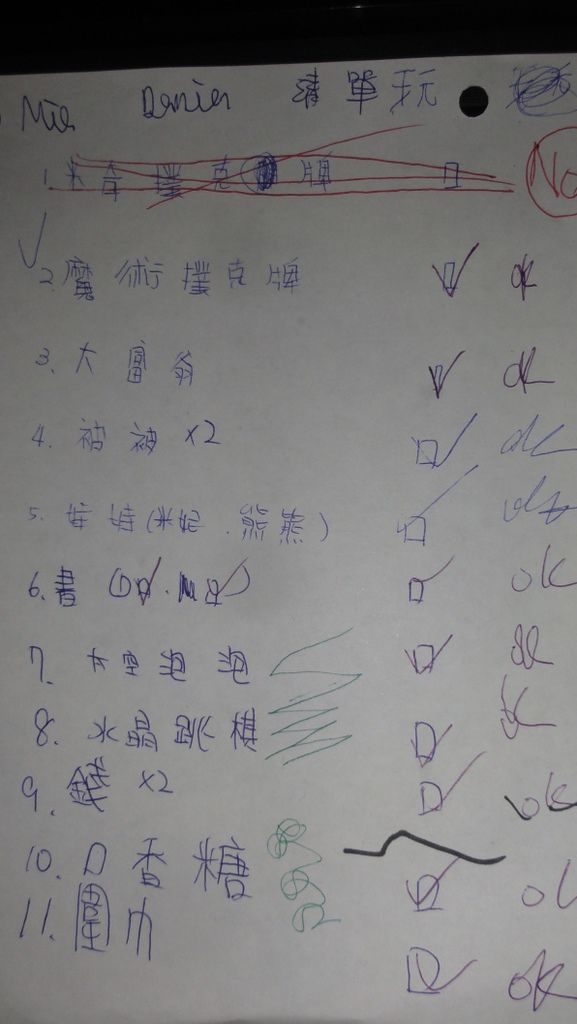 Mia Daniel 清單玩
1. 米奇撲克牌 No
2. 魔術撲克牌 ok
3. 大富翁 ok
4. 被被 x2 ok
5. 娃娃(米妮.熊熊) ok
6. 書 ok
7. 太空泡泡 ok
8. 水晶跳棋 ok
9. 錢 x2 ok
10. 口香糖 ok
11. 圍巾 ok